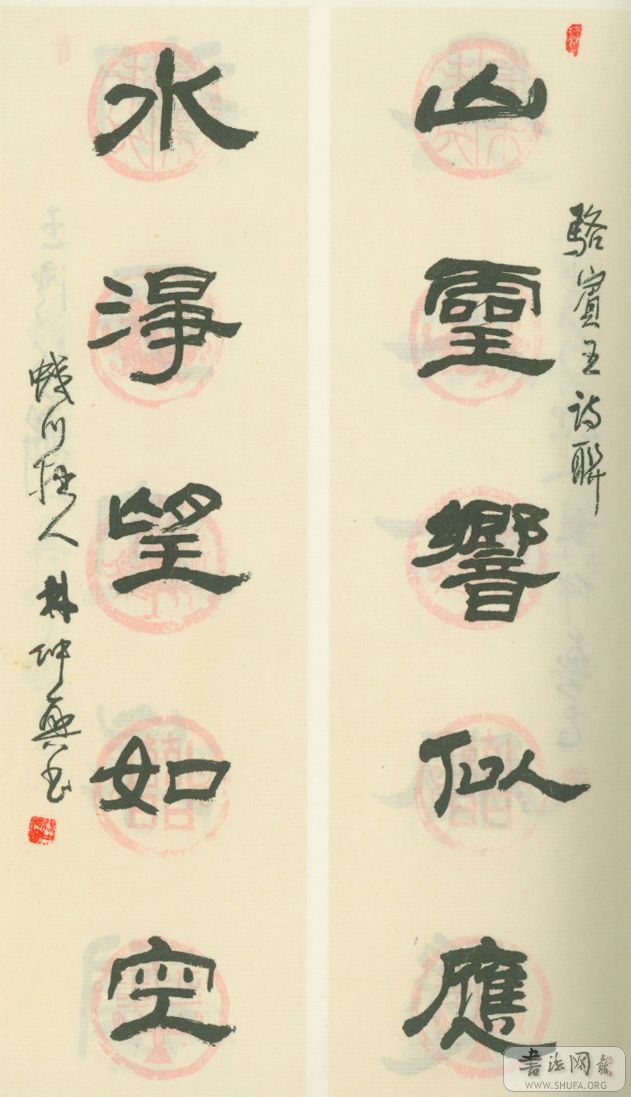 駱賓王詩聯
山靈響似應
水淨望如空
林仲興書
書法网
WWW.SHUFA.ORG